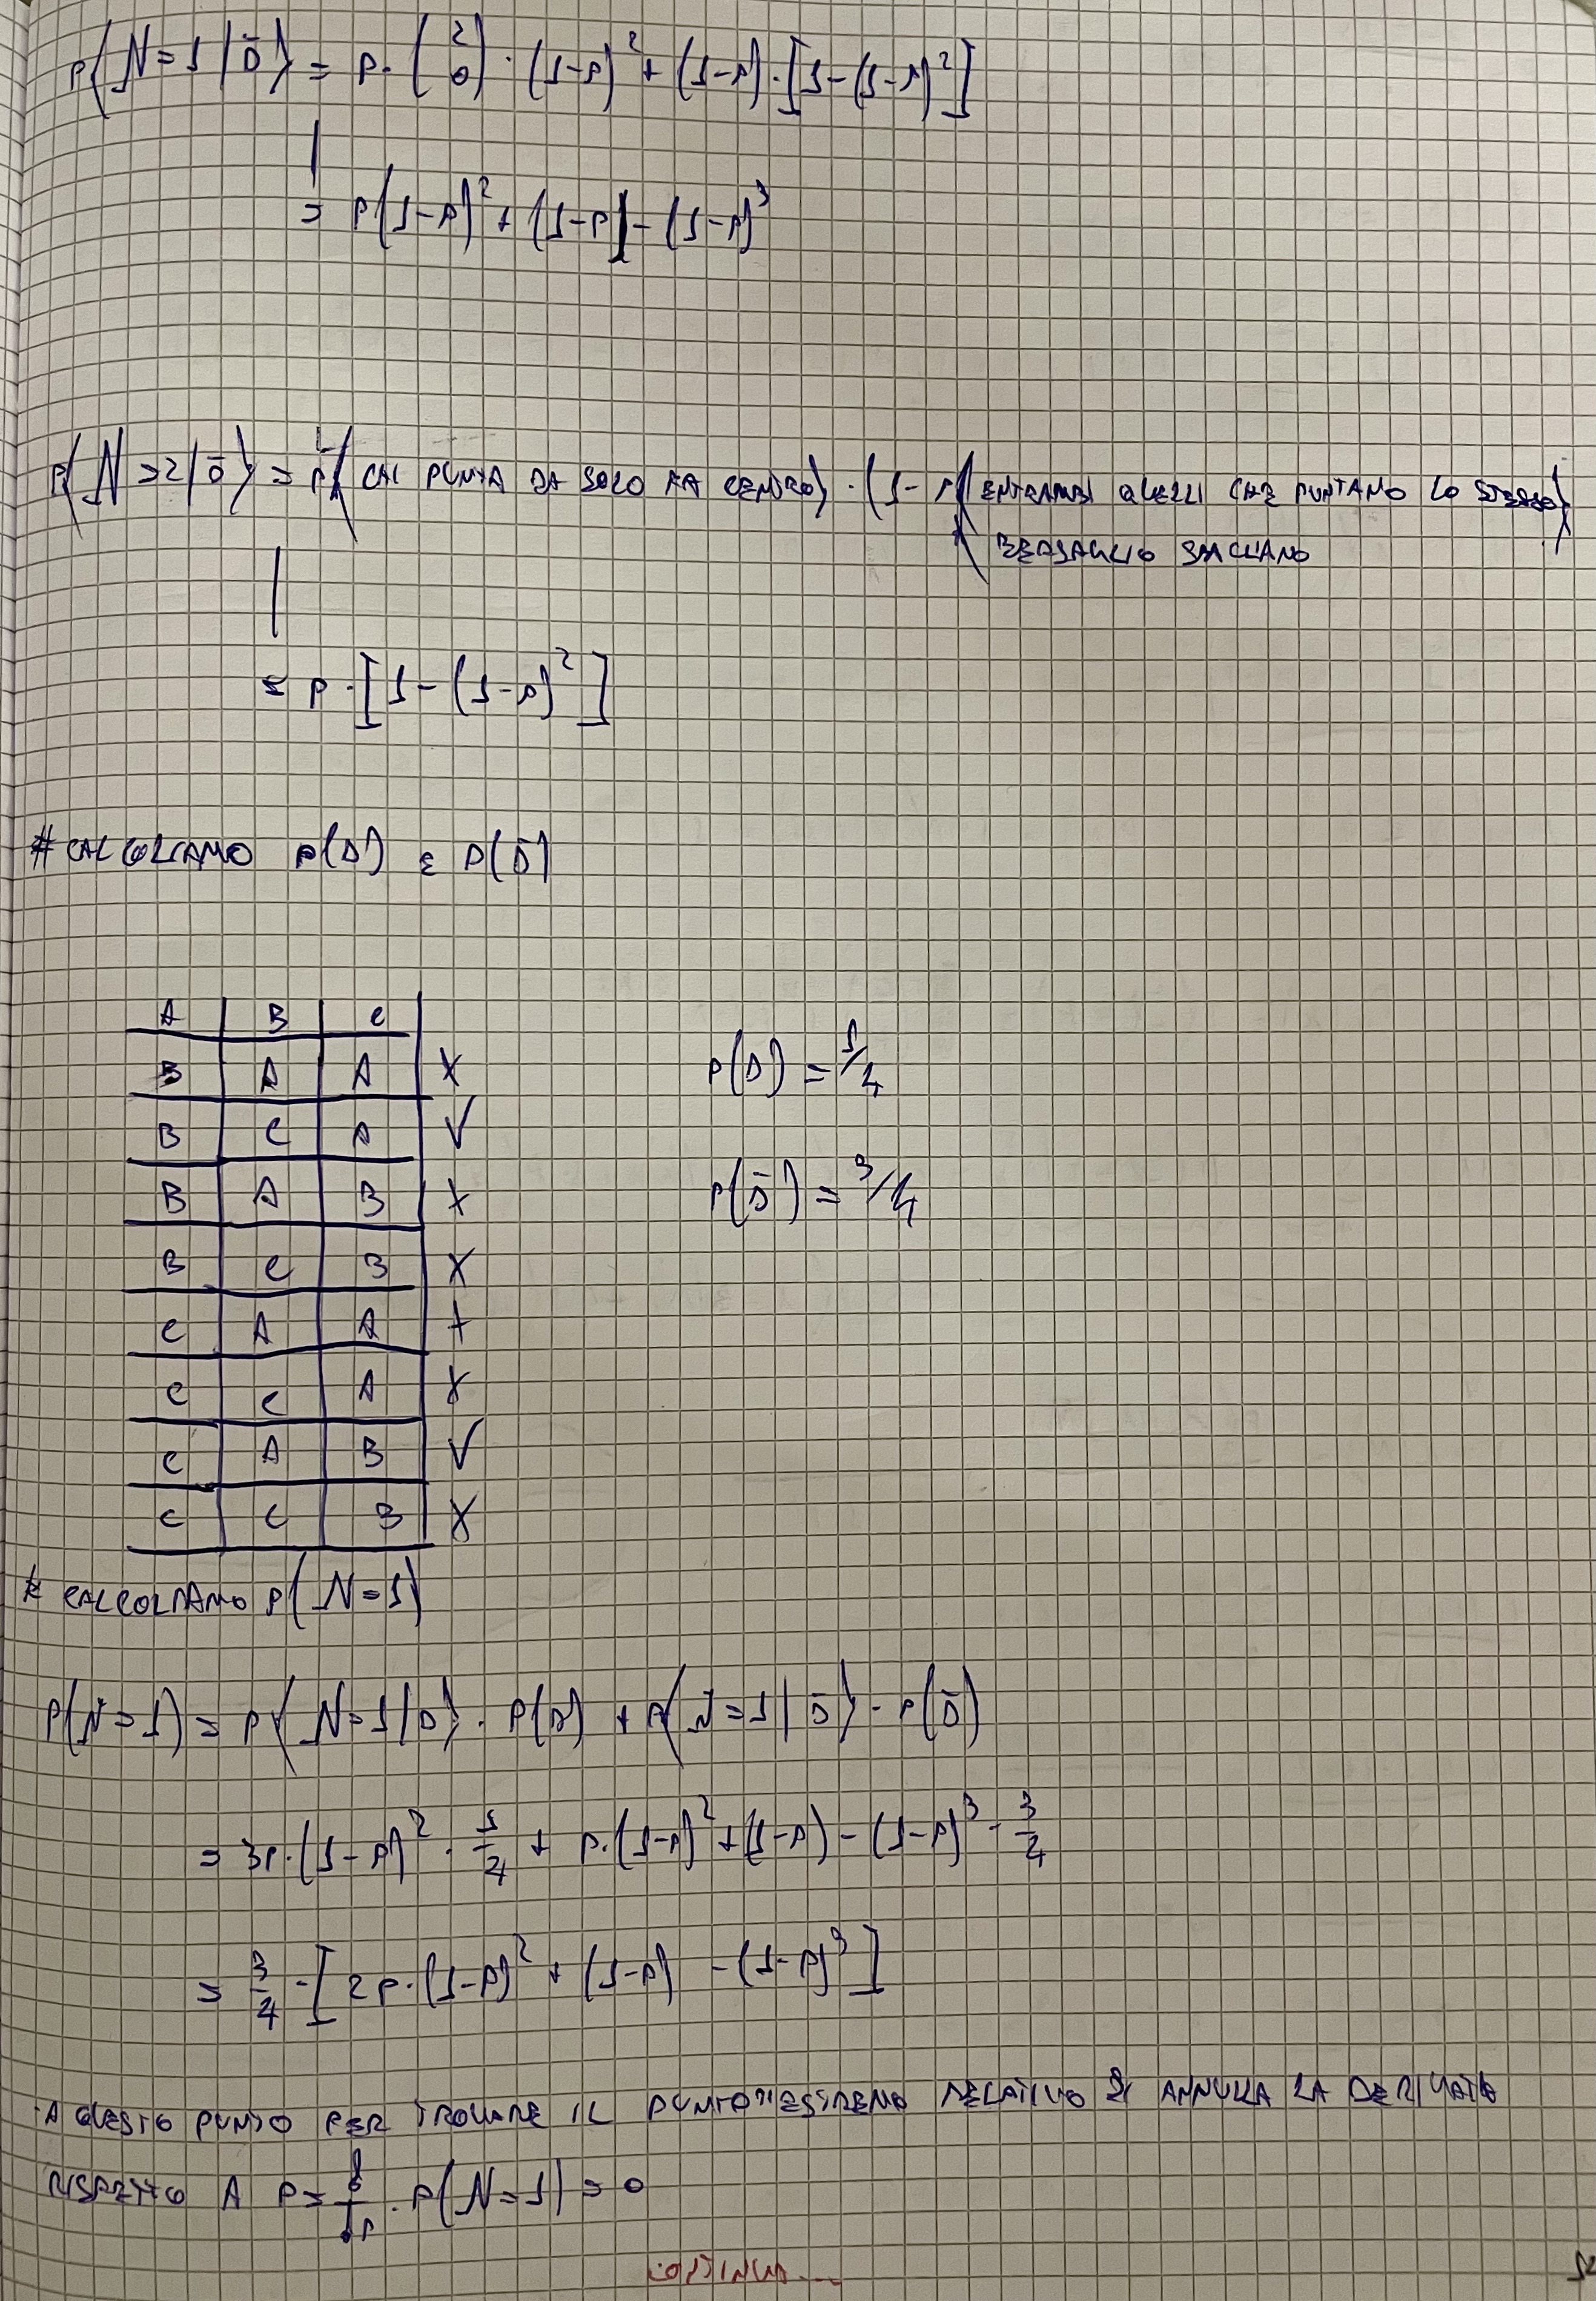 P{N=1|D̄} = P·(2 0)·(1-P)² + (1-P)·[1-(1-P)²]
= P(1-P)² + (1-P) - (1-P)³
P{N=2|D̄} = P{CHI PUNTA DA SOLO FA CENTRO}·(1-P{ENTRAMBI QUELLI CHE PUNTANO LO STESSO}
BERSAGLIO SBAGLIANO
= P·[1-(1-P)²]
# CALCOLIAMO P(D) E P(D̄)
A B C
B A A X
B C A V
B A B X
B C B X
C A A X
C C A X
C A B V
C C B X
P(D) = 1/4
P(D̄) = 3/4
# CALCOLIAMO P(N=1)
P(N=1) = P{N=1|D}·P(D) + P{N=1|D̄}·P(D̄)
= 3P·(1-P)²·1/4 + P·(1-P)² + (1-P) - (1-P)³·3/4
= 3/4·[2P·(1-P)² + (1-P) - (1-P)³]
A QUESTO PUNTO PER TROVARE IL PUNTO ESTREMO RELATIVO SI ANNULLA LA DERIVATA
RISPETTO A P = d/dP·P(N=1) = 0
CONTINUA...